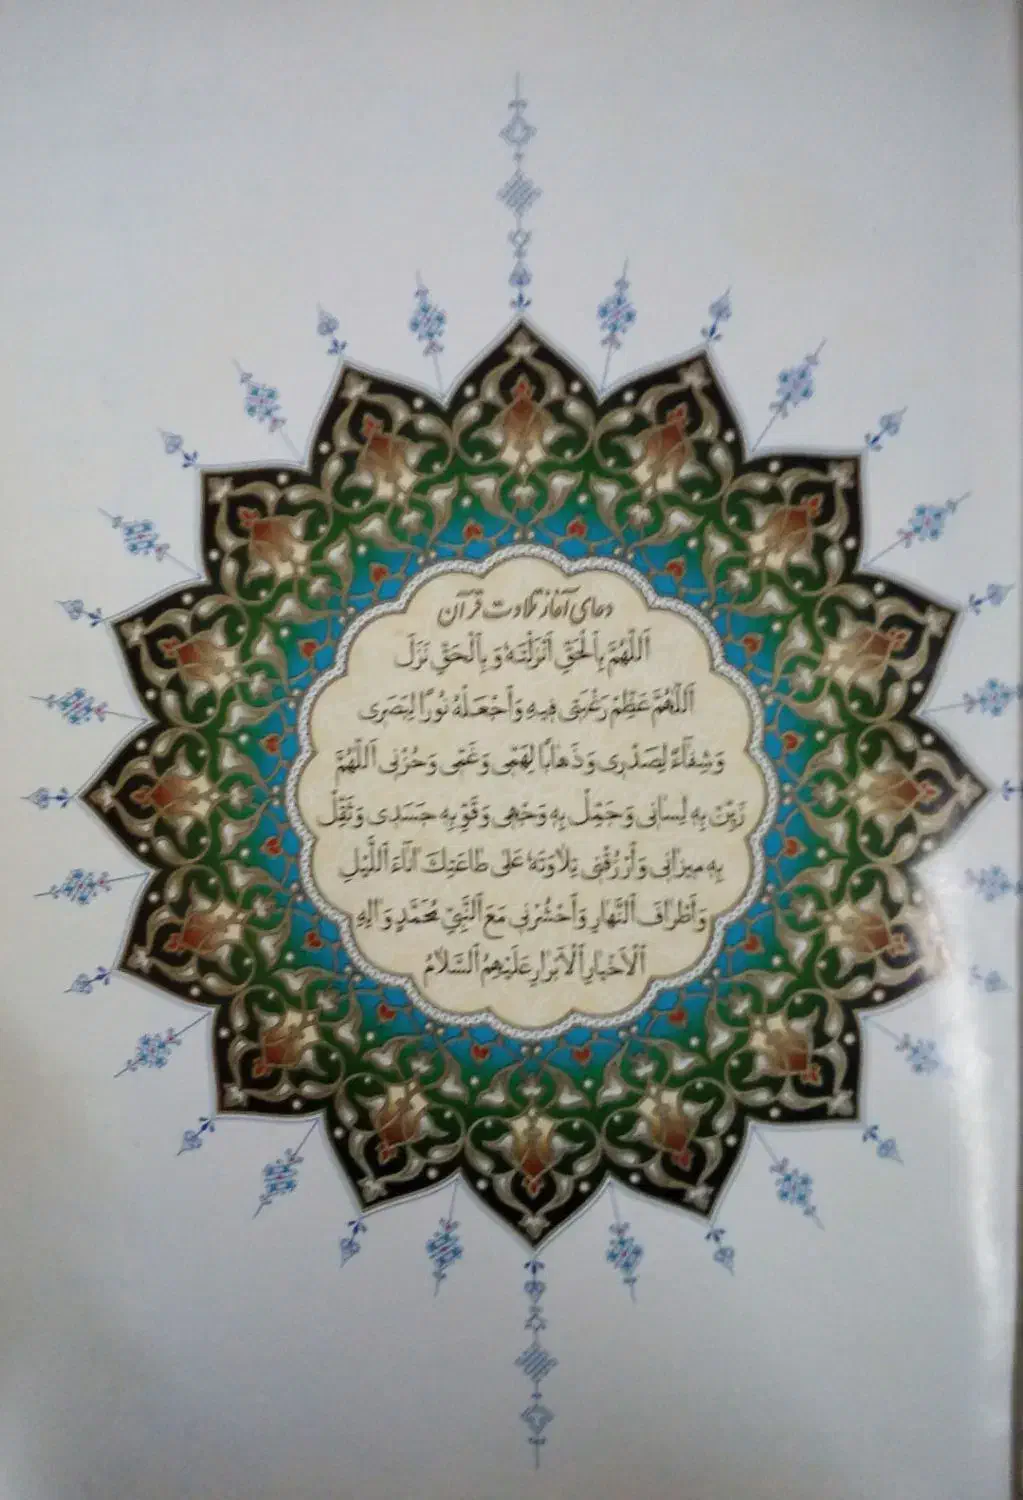 دعای آغاز تلاوت قرآن
اَللّٰهُمَّ بِالْحَقِّ اَنْزَلْتَهُ وَ بِالْحَقِّ نَزَلَ
اَللّٰهُمَّ عَظِّمْ رَغْبَتی فیهِ وَ اجْعَلْهُ نُورًا لِبَصَری
وَ شِفٰآءً لِصَدْری وَ ذَهٰابًا لِهَمّی وَ غَمّی وَ حُزْنی اَللّٰهُمَّ
زَیِّنْ بِهِ لِسٰانی وَ جَمِّلْ بِهِ وَجْهی وَ قَوِّ بِهِ جَسَدی وَ ثَقِّلْ
بِهِ میزٰانی وَ ارْزُقْنی تِلٰاوَتَهُ عَلیٰ طٰاعَتِكَ اٰنٰآءَ اللَّیْلِ
وَ اَطْرٰافَ النَّهٰارِ وَ احْشُرْنی مَعَ النَّبِیِّ مُحَمَّدٍ وَ اٰلِهِ
اَلْاَخْیٰارِ الْاَبْرٰارِ عَلَیْهِمُ السَّلٰامُ